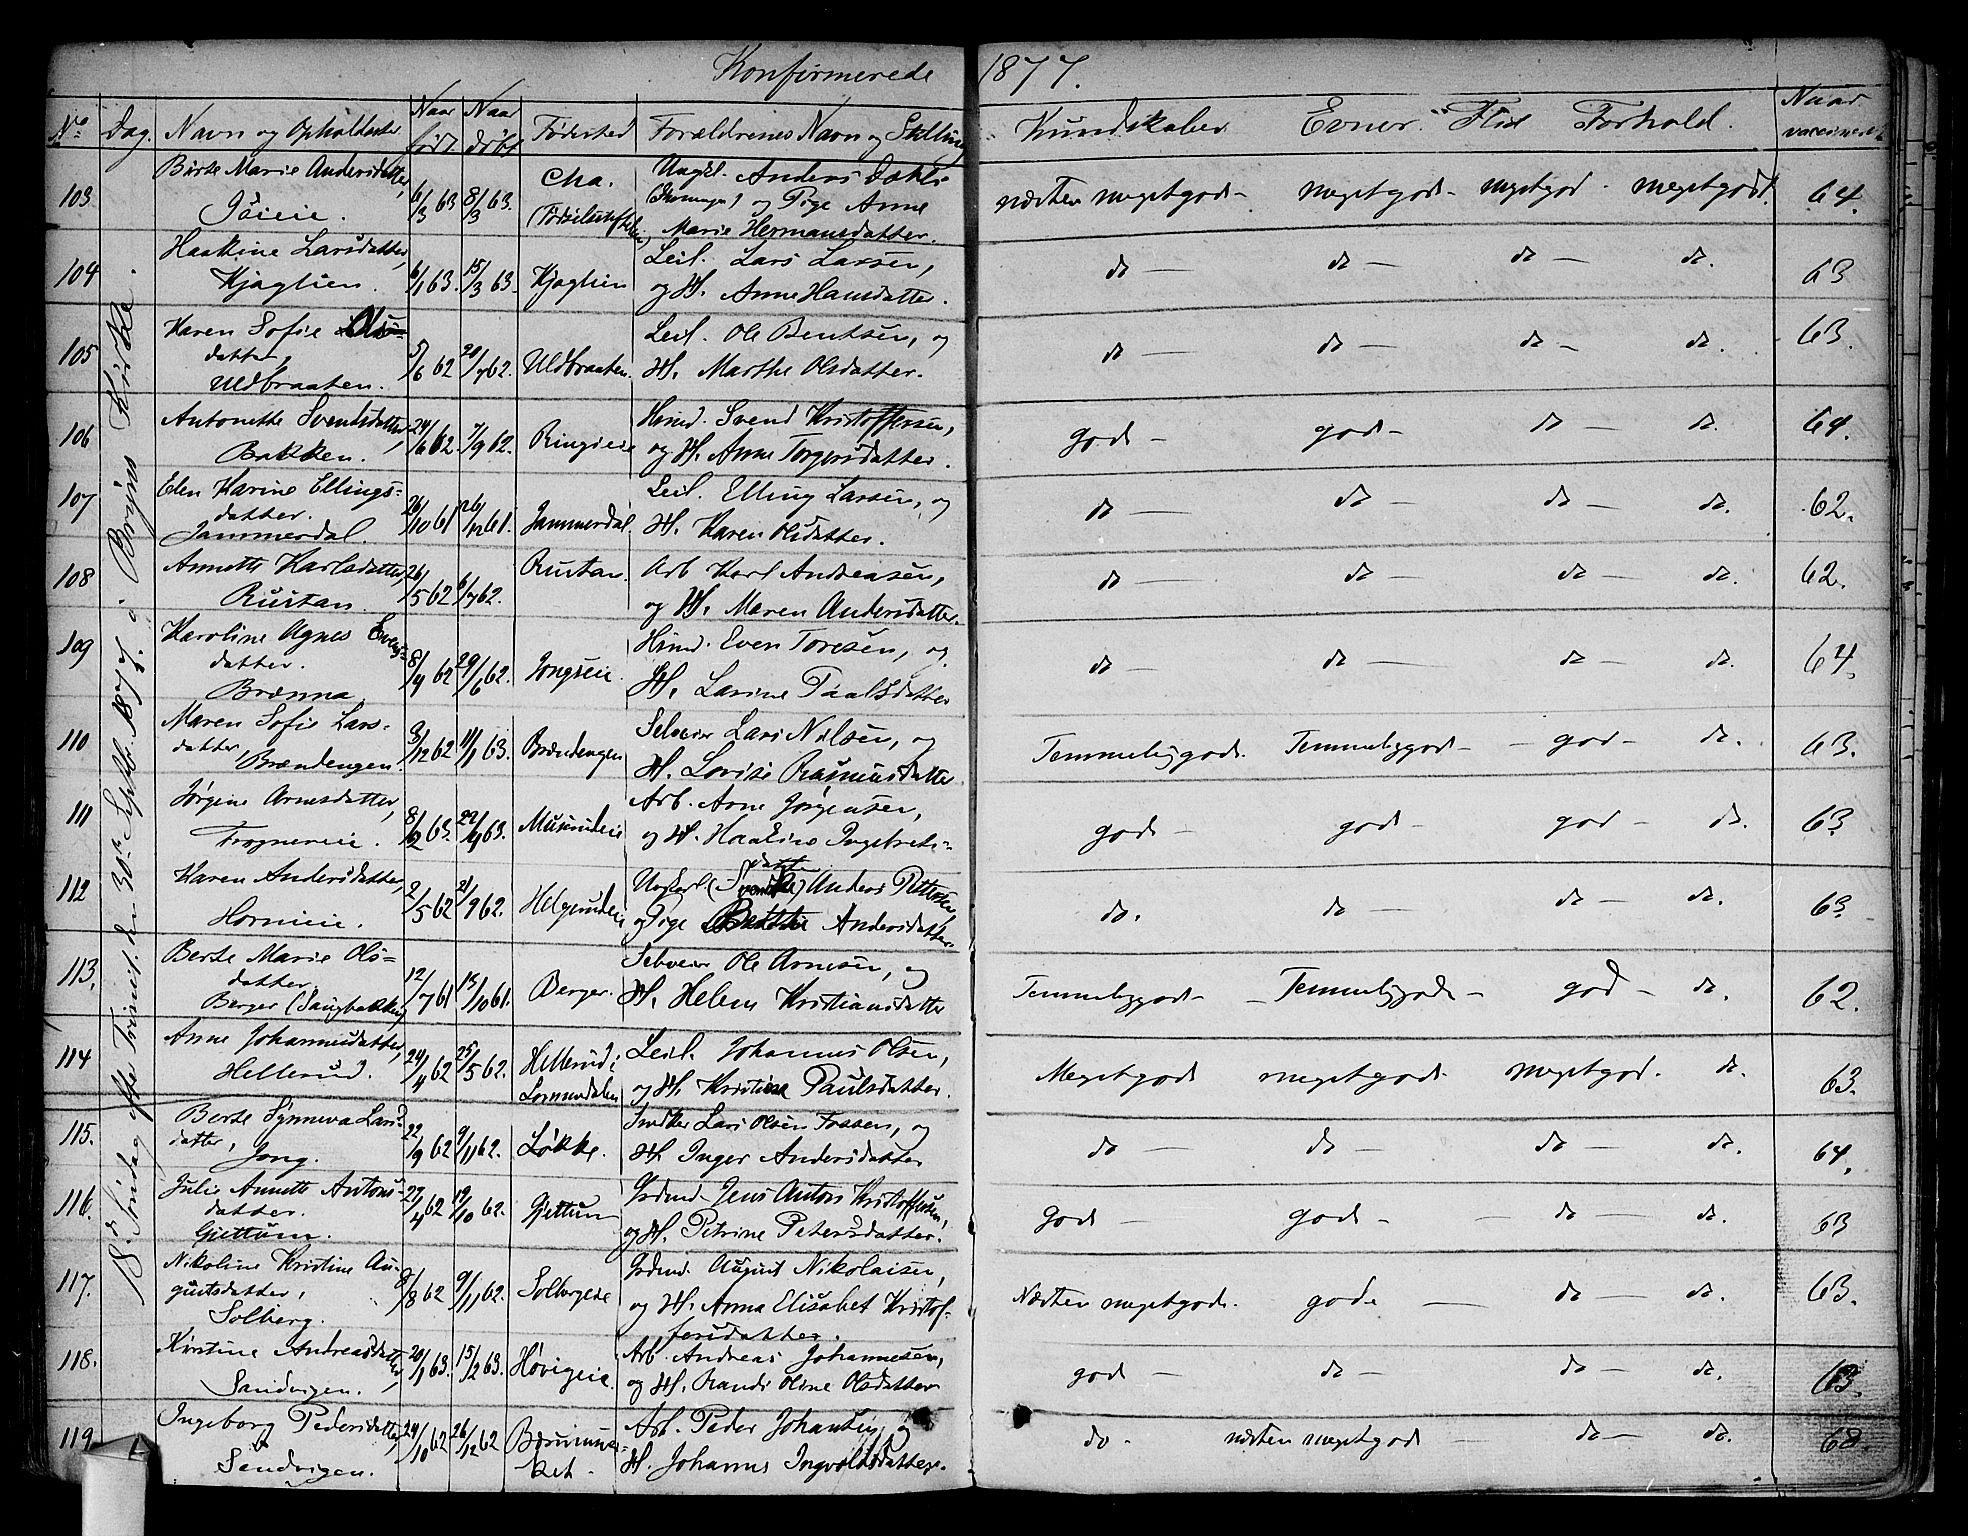 Konfirmerede 1877.
No Dag. Navn og Opholdssted Naar født Naar døbt Fødested Forældrenes Navn og Stilling Kundskaber Evner. Flid Forhold. Naar vaccineret
18d Søndag efter Trinit. den 30te Septb. 1877. i Bryns Kirke.
103 Birte Marie Andersdatter, 6/3 63 8/3 63. Cha. Ungkl. Anders næsten megetgod- megetgod- megetgod- megetgod. 64.
Gøieie. (Fødselsstiftelsen) og Pige Anne
Marie Hermansdatter.
104 Haakine Larsdatter, 6/1 63. 15/3 63. Kjaglien Leil. Lars Larsen, do — do — do — do. 63
Kjaglien. og H. Anne Hansdatter.
105 Karen Sofie Ols- 5/6 62 20/7 62. Uldbraaten. Leil. Ole Bentsen, og do — do — do — do. 63.
datter, H. Marthe Olsdatter.
Uldbraaten.
106 Antonette Svendsdatter, 24/6 62 7/9 62. Ringieie Hmd. Svend Kristoffersen, god- god- do — do. 64.
Bakken. og H. Anne Torgersdatter.
107 Elen Karine Ellings- 26/10 61 26/12 61. Jammerdal. Leil. Elling Larsen, og do — do — do — do. 62.
datter. H. Karen Olsdatter.
Jammerdal.
108 Annette Karlsdatter, 26/5 62 6/7 62. Rustan. Arb Karl Andreasen, do — do — do — do. 62.
Rustan. og H. Maren Andersdatter.
109 Karoline Agnes Evens- 8/4 62 29/6 62. Jongseie. Hmd. Even Toresen, og do — do — do — do. 64.
datter. H. Larine Paalsdatter
Brænna
110 Maren Sofie Lars- 3/12 62 11/1 63. Brændengen Selveier Lars Nilsen, og Temmeliggod. Temmeliggod- god- do. 63.
datter, H. Lovise Rasmusdatter
Brændengen.
111 Jørgine Arnesdatter, 8/2 63. 22/4 63. Musrudeie Arb. Arne Jørgensen, god- god- god- do. 63
Frognereie. og H. Haakine Ingebrets-
datt
112 Karen Andersdatter, 2/5 62 21/9 62. Helgerudeie Ungkarl (Svensk) Anders Pettersen do. do — do — do. 63
Hornieie. og Pige Andersdatter.
113. Berte Marie Ols- 12/7 61 13/10 61. Berger. Selveier Ole Arnesen, og Temmeliggod- Temmeliggod- god- do. 62.
datter. H. Helene Kristiansdatter
Berger (Saugbakken)
114 Anne Johannesdatter, 24/4 62 25/5 62. Hellerud i Leil. Johannes Olsen, Megetgod megetgod. megetgod. do. 63.
Hellerud. Lommedalen og H. Kristine Paulsdatter.
115. Berte Synneva Lars- 22/9 62 9/11 62. Løkke. Lars Olsen Fossen, og do — do — do — do. 64.
datter, H. Inger Andersdatter
Jong.
116. Julie Annette Antons- 27/4 62 19/10 62. Gjettum Grdmd. Jens Anton Kristoffersen, god- god- do — do. 63
datter. og H. Petrine Petersdatter.
Gjettum.
117. Nikoline Kristine Au- 8/8 62 9/11 62. Solbergeie Grdmd. August Nikolaisen, Næsten megetgod. god. — do — do. 63.
gustsdatter, og H. Anna Elisabet Kristof-
Solberg. fersdatter.
118. Kirstine Andreasdatter, 20/1 63. 15/2 63. Høvigeie. Arb. Andreas Johannesen, god- do — do — do. 63.
Sandvigen. og H. Randi Oline Olsdatter
119 Ingeborg Pedersdatter, 24/10 62 26/12 62 Bærumsver- Arb. Peder Johansen, og do. næsten megetgod — do — do. 68.
Sandvigen. ket. H. Johanne Ingvoldsdatter.